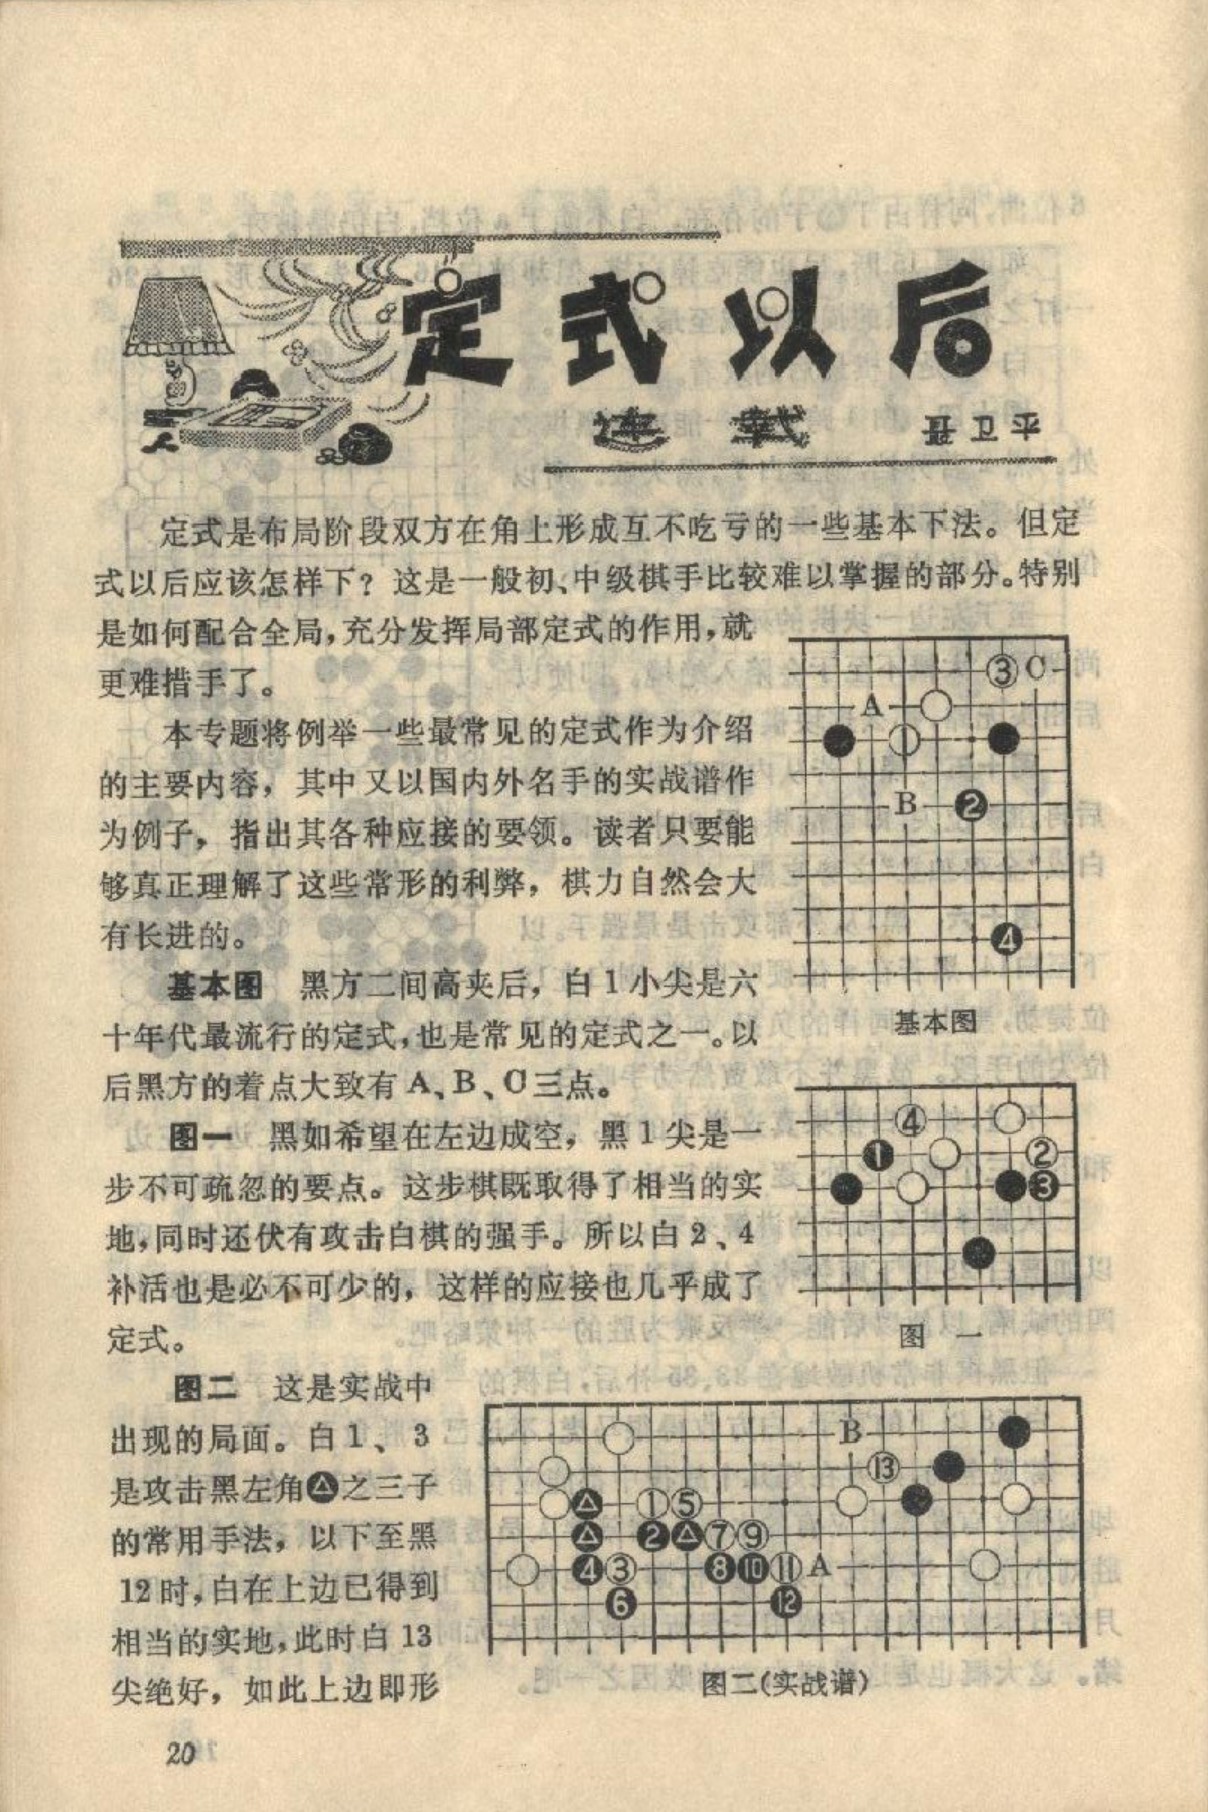 定式以后
连载 聂卫平
定式是布局阶段双方在角上形成互不吃亏的一些基本下法。但定
式以后应该怎样下？这是一般初、中级棋手比较难以掌握的部分。特别
是如何配合全局，充分发挥局部定式的作用，就
更难措手了。
本专题将例举一些最常见的定式作为介绍
的主要内容，其中又以国内外名手的实战谱作
为例子，指出其各种应接的要领。读者只要能
够真正理解了这些常形的利弊，棋力自然会大
有长进的。
基本图 黑方二间高夹后，白1小尖是六
十年代最流行的定式，也是常见的定式之一。以
后黑方的着点大致有A、B、C三点。
图一 黑如希望在左边成空，黑1尖是一
步不可疏忽的要点。这步棋既取得了相当的实
地，同时还伏有攻击白棋的强手。所以白2、4
补活也是必不可少的，这样的应接也几乎成了
定式。
图二 这是实战中
出现的局面。白1、3
是攻击黑左角▲之三子
的常用手法，以下至黑
12时，白在上边已得到
相当的实地，此时白13
尖绝好，如此上边即形
③C
A
①
B ❷
❹
基本图
④
❶ ②
❸
图一
B
⑬
▲ ① ⑤
▲ ❷ ▲ ⑦ ⑨
❹ ③ ❽ ❿ ⑪ A
❻ ⓬
图二(实战谱)
20